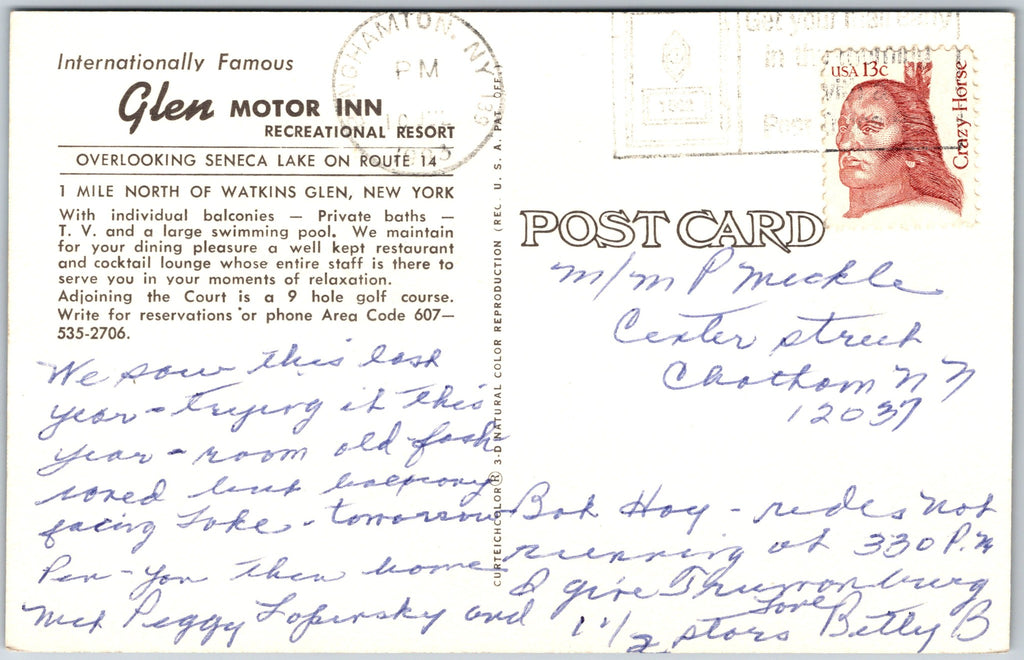 Internationally Famous
Glen MOTOR INN
RECREATIONAL RESORT
OVERLOOKING SENECA LAKE ON ROUTE 14
1 MILE NORTH OF WATKINS GLEN, NEW YORK
With individual balconies — Private baths —
T. V. and a large swimming pool. We maintain
for your dining pleasure a well kept restaurant
and cocktail lounge whose entire staff is there to
serve you in your moments of relaxation.
Adjoining the Court is a 9 hole golf course.
Write for reservations or phone Area Code 607—
535-2706.
We saw this last
year - trying it this
year - room old fash
ioned but balcony
facing Lake - tomorrow
Pen-Yan then home
met Peggy Lopinsky and
Bob Hoy - rides not
running at 330 P.M
I give Trumansburg
1 1/2 stars Love Betty B
CURTEICHCOLOR® 3-D NATURAL COLOR REPRODUCTION (REC. U. S. A. PAT. OFF.
NGHAMTON, NY 139
PM
Get your mail early
in the
USA 13c
Crazy Horse
POST CARD
M/M P Meckle
Center street
Chatham N Y
12037